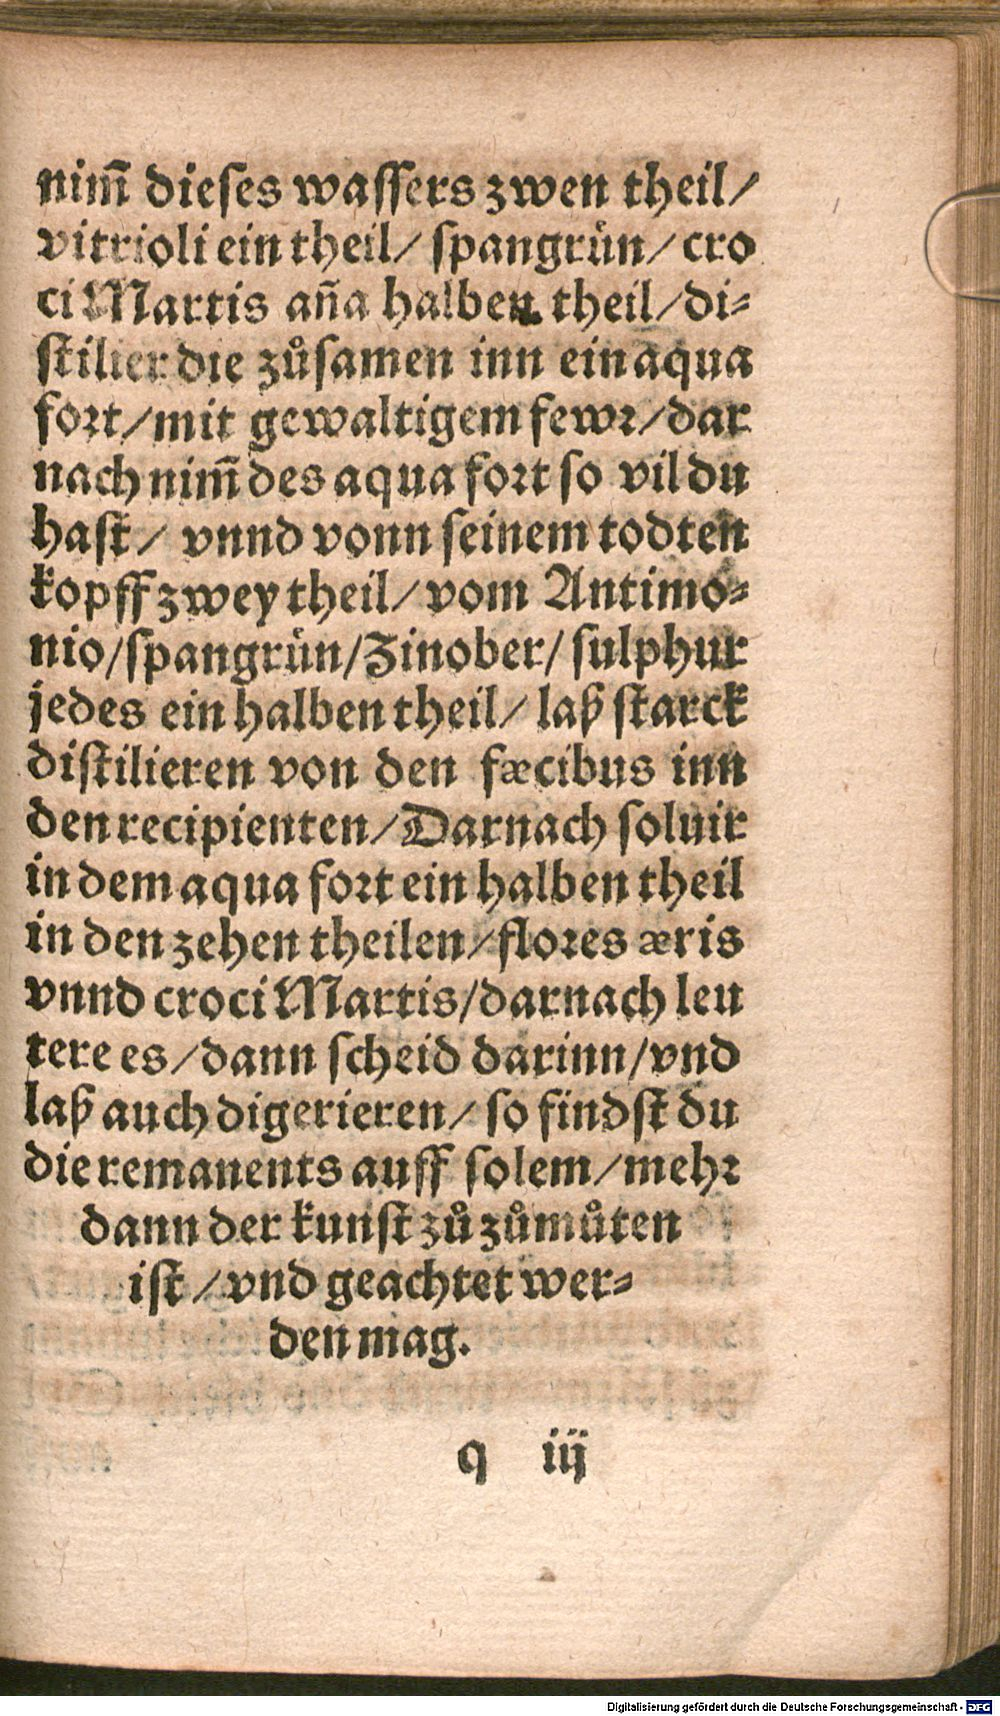 nim̃ dieses wassers zwen theil/
vitrioli ein theil/ spangrün/ cro
ci Martis an̄a halben theil/ di⸗
stilier die zůsamen inn ein aqua
fort/ mit gewaltigem fewr/ dar
nach nim̃ des aqua fort so vil du
hast/ vnnd vonn seinem todten
kopff zwey theil/ vom Antimo⸗
nio/ spangrün/ Zinober/ sulphur
jedes ein halben theil/ laß starck
distilieren von den fæcibus inn
den recipienten/ Darnach soluir
in dem aqua fort ein halben theil
in den zehen theilen/ flores æris
vnnd croci Martis/ darnach leu
tere es/ dann scheid darinn/ vnd
laß auch digerieren/ so findst du
die remanents auff solem/ mehr
dann der kunst zů zůmůten
ist/ vnd geachtet wer⸗
den mag.
q iij
Digitalisierung gefördert durch die Deutsche Forschungsgemeinschaft - DFG